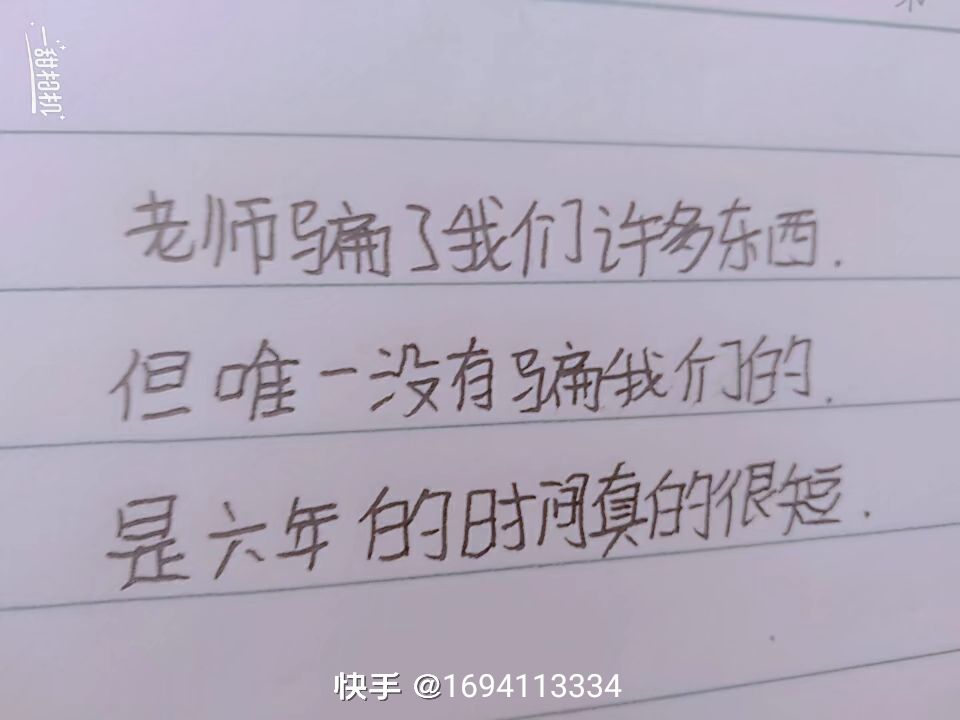 一甜相机
老师骗了我们许多东西.
但唯一没有骗我们的.
是六年的时间真的很短.
快手 @1694113334